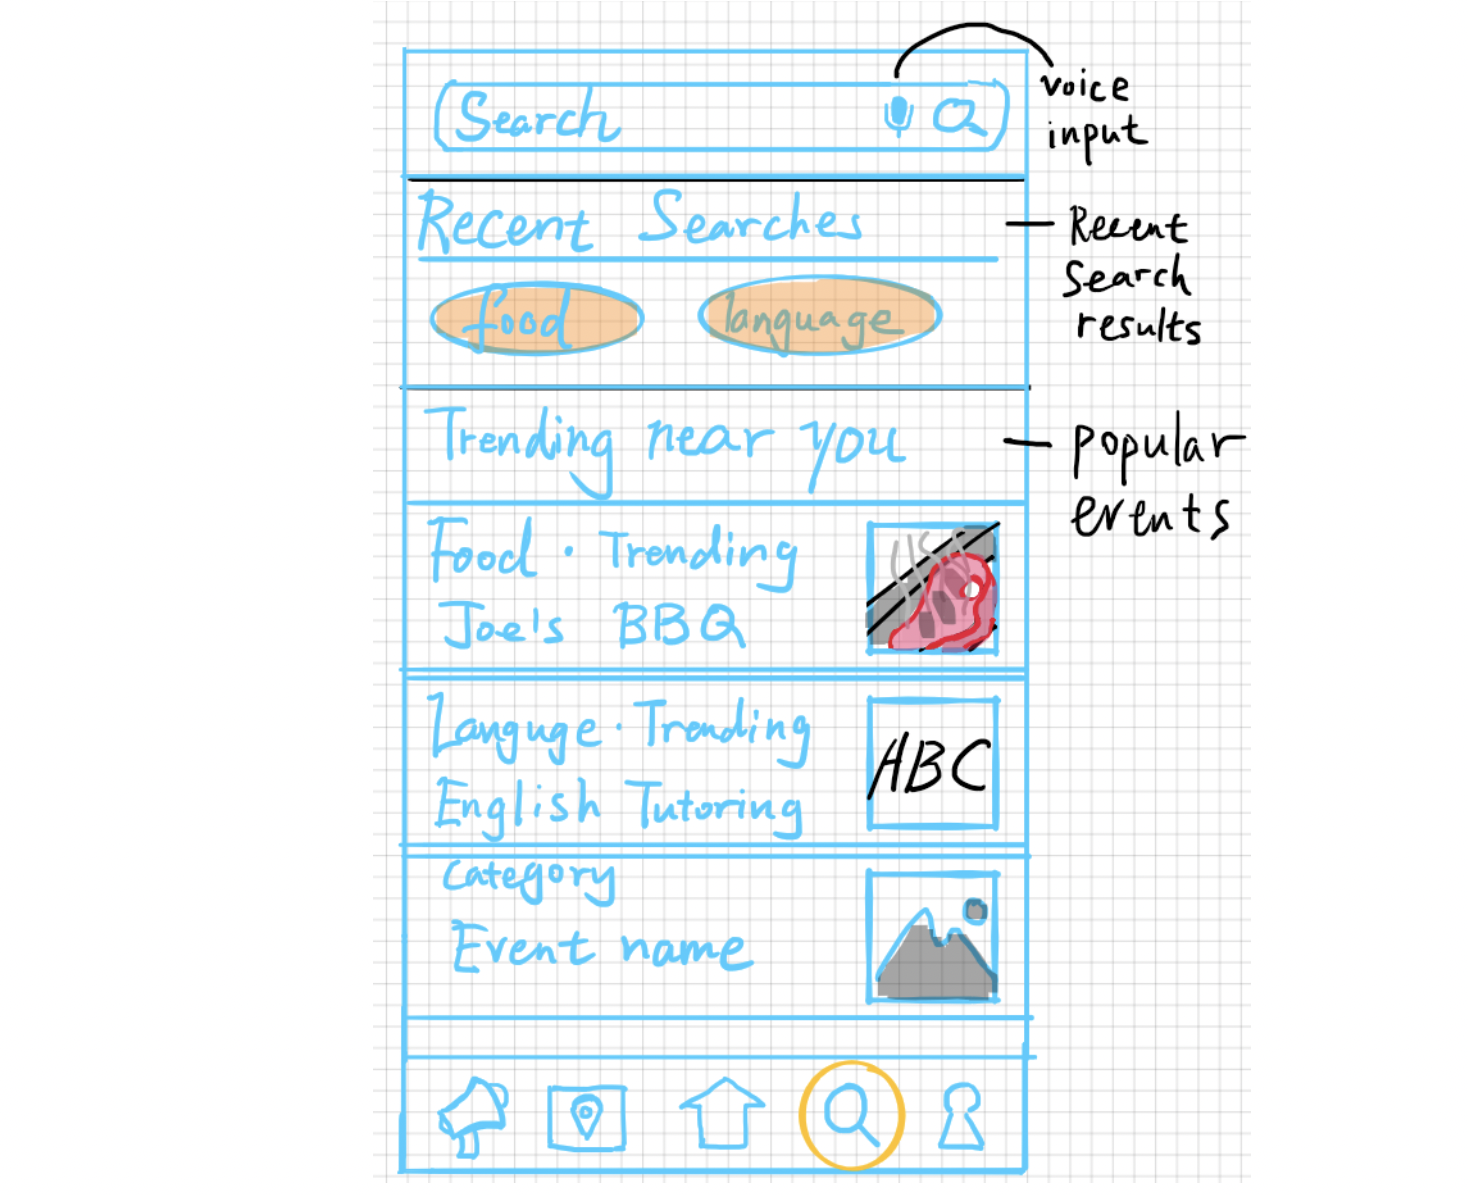 Search
voice
input
Recent Searches
Recent
Search
results
food
language
Trending near you
popular
events
Food · Trending
Joe's BBQ
Languge · Trending
English Tutoring
ABC
Category
Event name